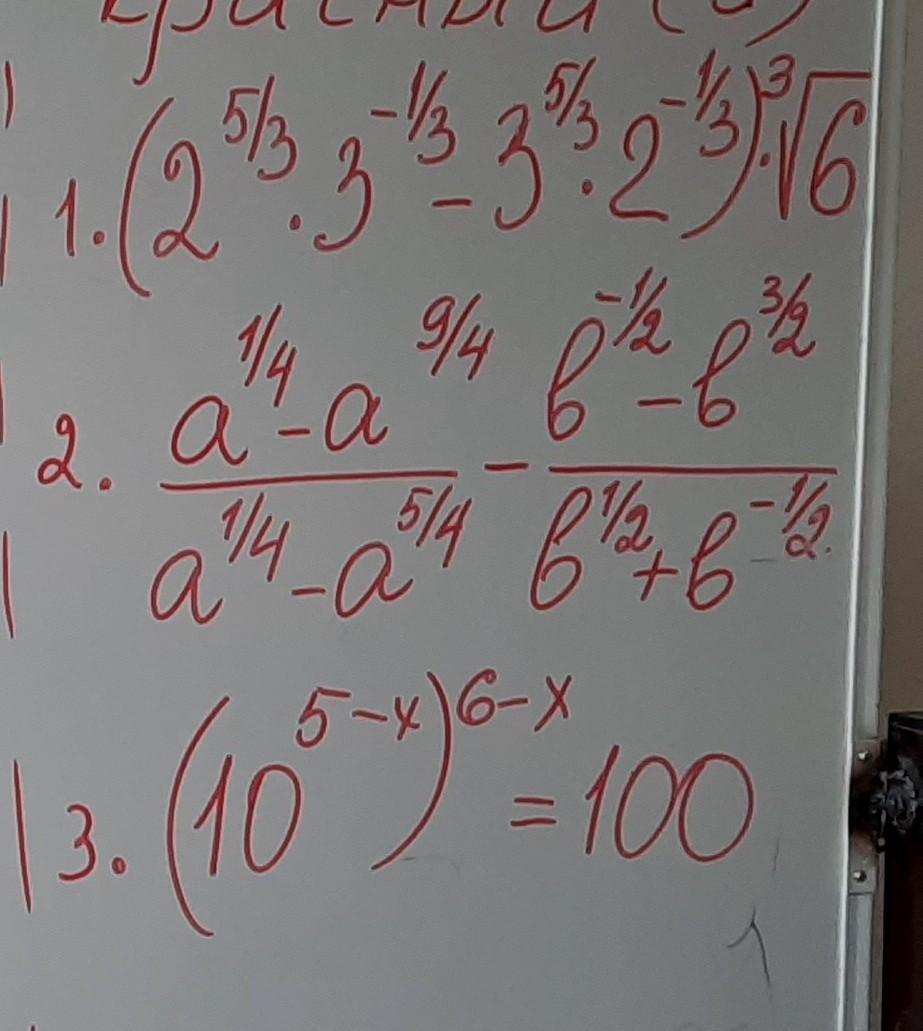 красный (
1. (2^5/3 · 3^-1/3 - 3^5/3 · 2^-1/3) · ³√6
2. (a^1/4 - a^9/4)/(a^1/4 - a^5/4) - (в^-1/2 - в^3/2)/(в^1/2 + в^-1/2)
3. (10^5-x)^6-x = 100